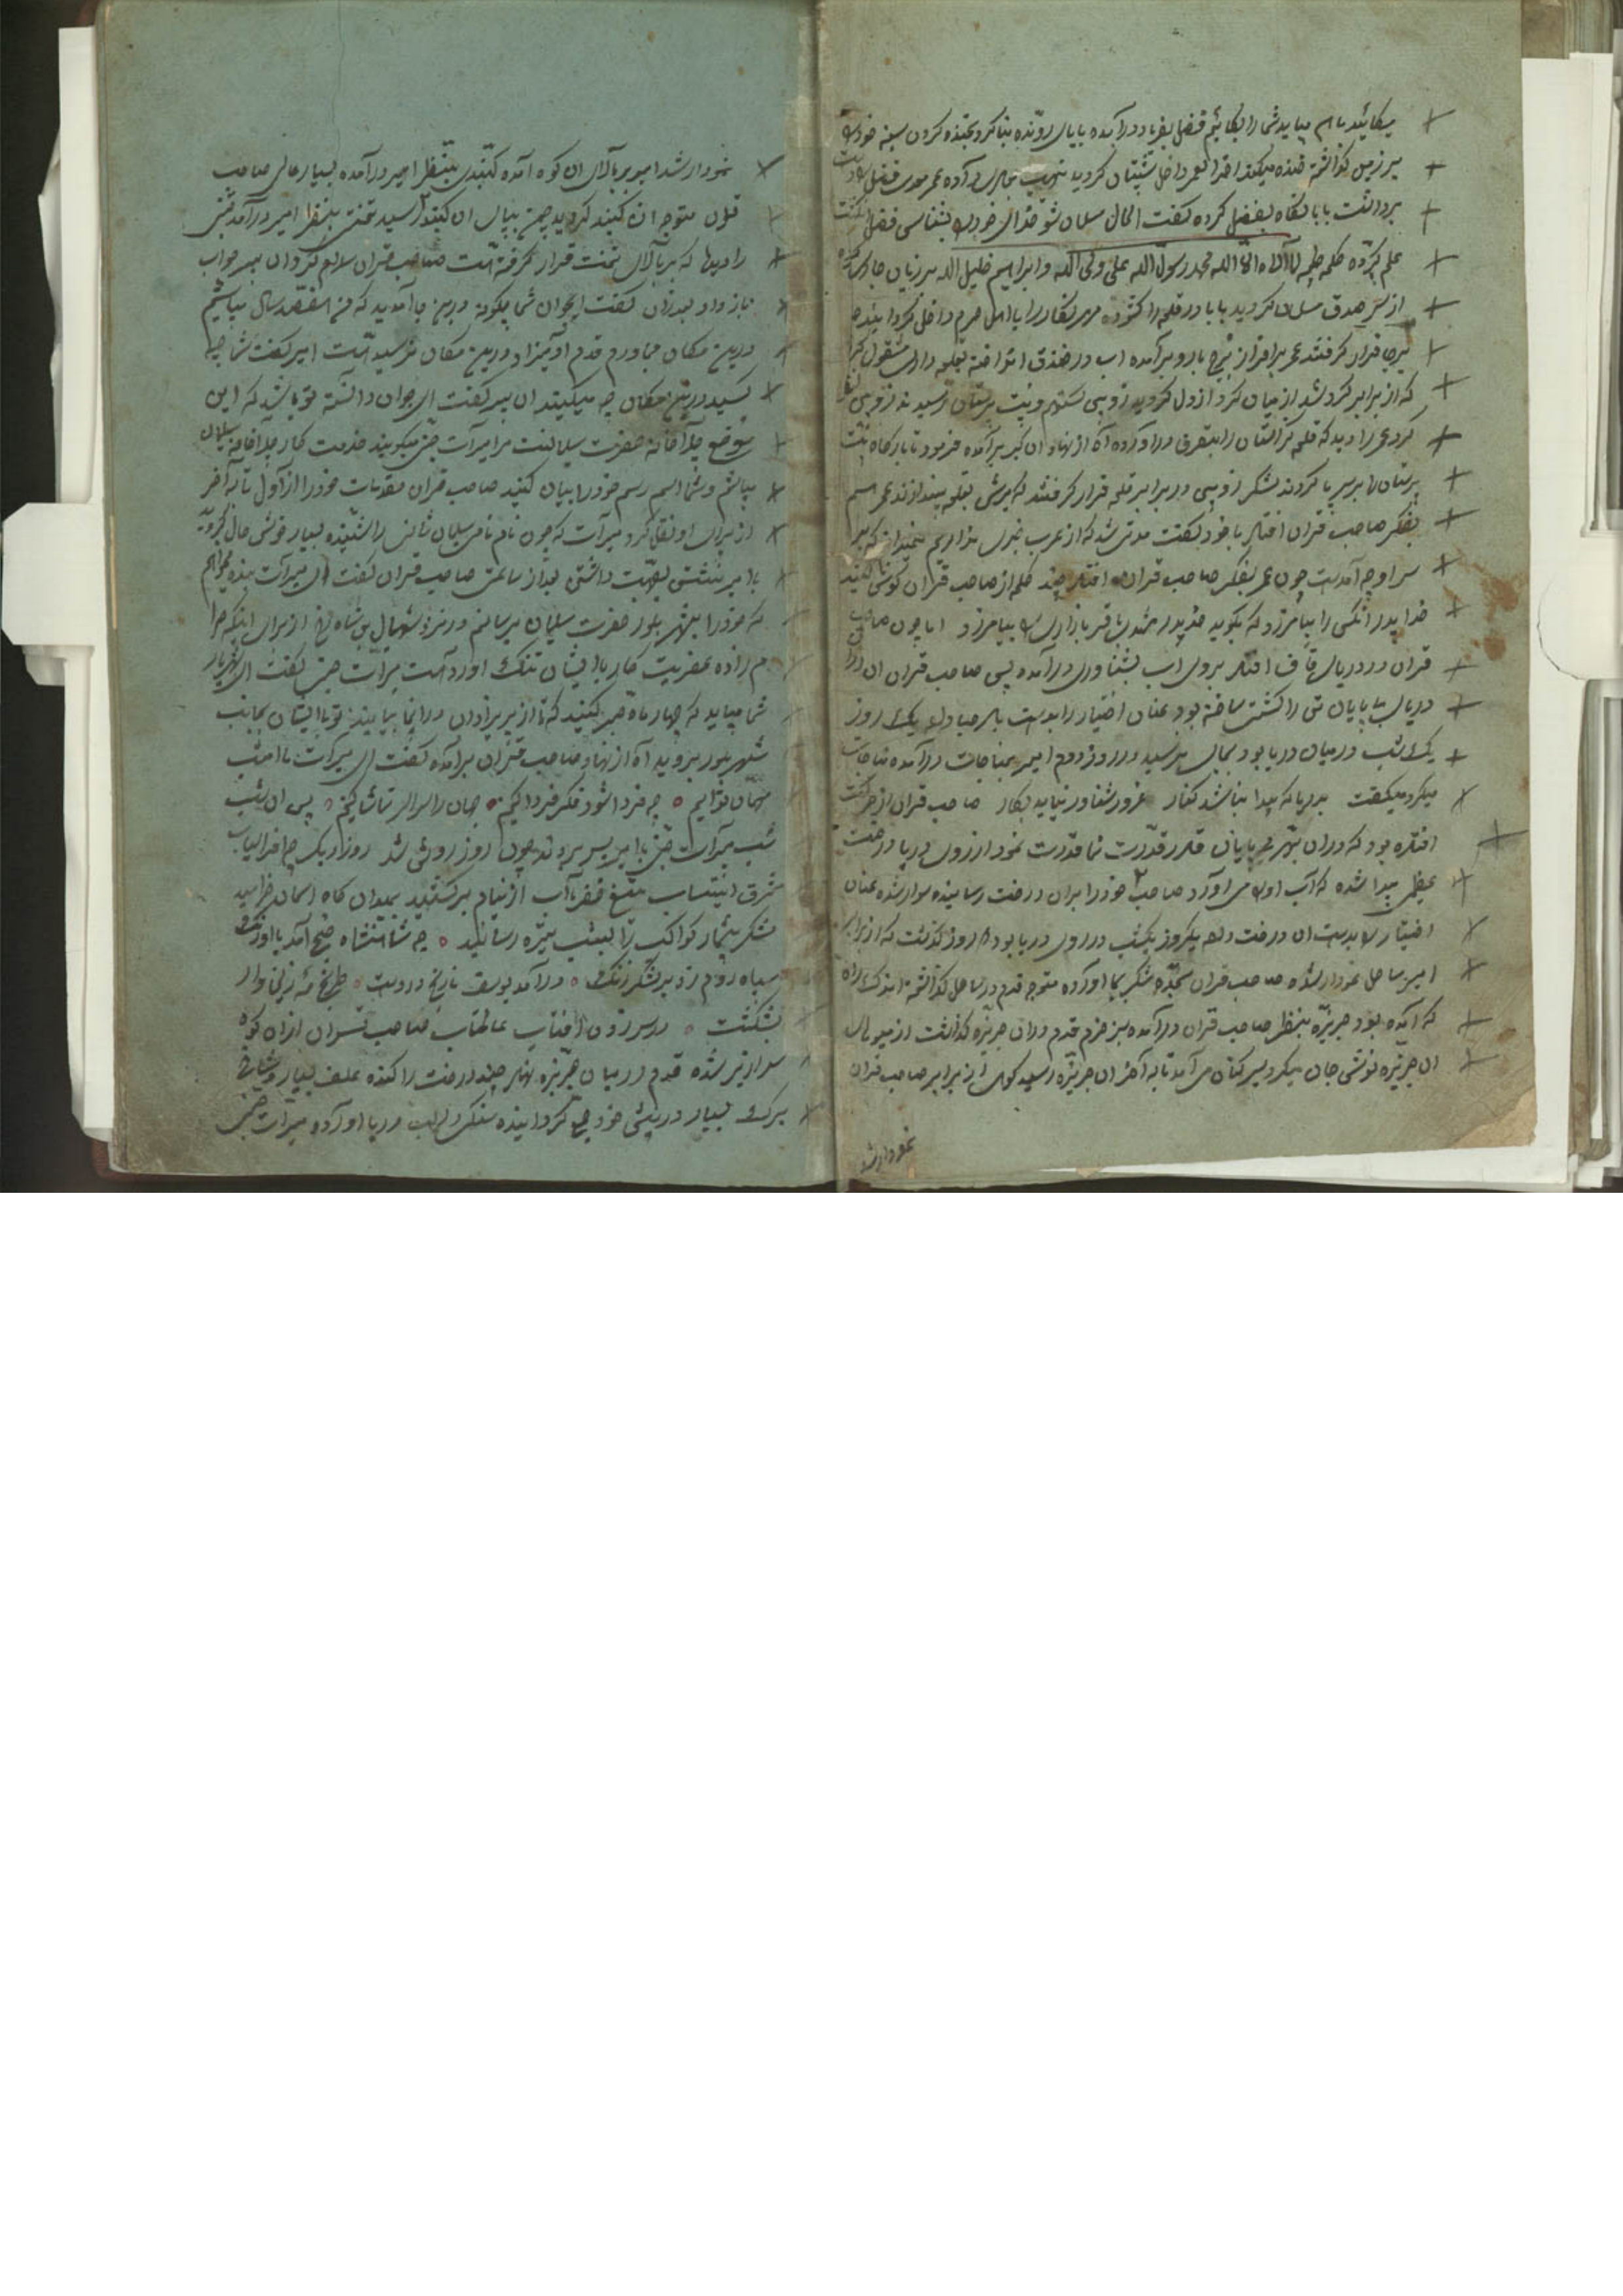 میکائید باهم بیایید شما را بکائیم فضل بفریاد درآمده بابای رونده بنا کرد بخنده کردن سینه خود را
بر زمین گذاشته خنده میکند آخر العمر داخل شبستان گردید نهیب بجای درآورده عمر معدی فضل را
برداشت بابا نگاه بفضل کرده گفت الحال مسلمان شو خدای خود را بشناسی فضل انگشت
علم کرده کلمه طیبه لا اله الا الله محمد رسول الله علی ولی الله و ابراهیم خلیل الله بر زبان جاری کرده
از سر صدق مسلمان گردید بابا در قلعه را گشوده مهر نگار را با اهل حرم داخل گردانیده
برجا قرار گرفتند عمر بر افراز برج بارو برآمده آب در خندق انداخته بقلعه داری مشغول
که از برابر گرد شد از میان گرد اردوی زوبین ستم و بت پرستان رسید
گرد عمر را دید که قلعه را بتصرف درآورده آه از نهاد آن گبر برآمده فرمود تا بارگاه بت
پرستان را بر سر پا کردند لشکر زوبین در برابر قلعه قرار گرفتند که یورش بقلعه بیندازند عمر
بفکر صاحب قران افتاد با خود گفت مدتی شد که از عرب خبری ندارم نمیدانم که بر
سر او چه آمدست چون عمر بفکر صاحب قران افتاد چند کلمه از صاحب قران گوش کنید
خدا پدر آنکس را بیامرزد که بگوید خدا پدر مشهدی باقر بازاری را بیامرزد اما چون صاحب
قران در دریای قاف افتاد بر روی آب بشناوری درآمده پس صاحب قران آن
دریای بی پایان تن را کشتی ساخته بود عنان اختیار را بدست باد صبا داده یک روز
یک شب در میان دریا بود بجایی نرسید در روز دوم امیر بمناجات درآمده مناجات
میکرد میگفت بدریا که پیدا نباشد کنار غرور شناور نیاید بکار صاحب قران از حرکت
افتاده بود که در آن بحر بی پایان قادر قدرت نما قدرت نمود از روی دریا درخت
عظیمی پیدا شده که آب او را می آورد صاحب خود را بر آن درخت رسانیده سوار شده عنان
اختیار را بدست آن درخت داد یکروز یکشب در روی دریا بود روز گذشت که از برابر
امیر ساحل نمودار شد صاحب قران سجده شکر بجا آورده متوجه قدم در ساحل گذاشته اندک راه
که آمده بود جزیره بنظر صاحب قران درآمده سبز خرم قدم در آن جزیره گذاشت از میوهای
آن جزیره نوش جان میکرد سیر کنان می آمد تا به آخر آن جزیره رسید کوهی از برابر صاحب قران
نمودار شد
نمودار شد امیر بر بالای آن کوه آمده گنبدی بنظر امیر درآمده بسیار عالی صاحب
قران متوجه آن گنبد گردید چون بپای آن گنبد رسید تختی بنظر امیر درآمد شخصی
را دید که بر بالای تخت قرار گرفته است صاحب قران سلام کرد آن پیر جواب
باز داد بعد از آن گفت ای جوان شما چگونه درین جا آمدید که من هفتصد سال میباشم
درین مکان مجاورم قدم آدمیزاد درین مکان نرسیده است امیر گفت شما چه
کسید درین مکان چه میکنید آن پیر گفت ای جوان دانسته تو باشد که این
موضع چله خانه حضرت سلیمان است مرا میرآت جن میگویند خدمت کار چله خانه سلیمان
میباشم و شما اسم رسم خود را بیان کنید صاحب قران مقدمات خود را از اول تا به آخر
از برای او نقل کرد میرآت که چون نام نامی سلیمان ثانی را شنیده بسیار خوش حال گردید
با امیر بنشست صحبت داشتی بعد از ساعتی صاحب قران گفت ای میرآت بنده میخواهم
که خود را بشهر بلور حضرت سلیمان برسانم شهبال بن شاهرخ از برای اینکه حرا
م زاده عفریت کار با ایشان تنگ آورده است میرآت جن گفت ای شهریار
شما میباید که چهار ماه صبر کنید که تا از پریزادان در اینجا بیایند تو با ایشان بجانب
شهر بلور بروید آه از نهاد صاحب قران برآمده گفت ای میرآت ما امشب
مهمان توایم چه فردا شود فکر فردا کنیم جهان را سراسر تماشا کنیم پس آن شب
شب میرآت جن با امیر بسر بردند چون روز روشن شد روز دیگر چه افراسیاب
مشرق انتساب تیغ ظفر مآب از نیام برکشید بمیدان گاه آسمان خرامید
لشکر بیشمار کواکب را بعیب تیره رسانید چه شاهنشاه صبح آمد با اورنگ
سپاه روم زد بر لشکر زنگ درآمد یوسف نارنج در دست ترنج مه زلیخا وار
بشکست در سر زدن آفتاب عالمتاب صاحب قران از آن کوه
سرازیر شده قدم در میان جزیره نهاد چند درخت را کنده علف بسیار و شاخ
برگ بسیار در پیش خود جمع گردانیده سنگی بر لب دریا آورد و میرآت جن